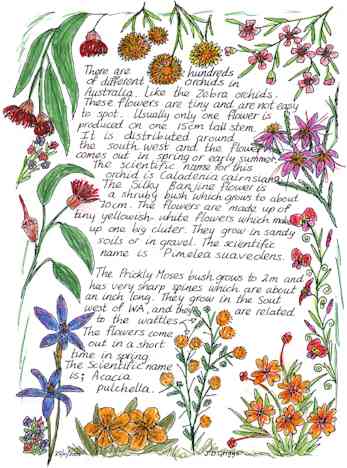 There are hundreds
of different orchids in
Australia. Like the Zebra orchids.
These flowers are tiny and are not easy
to spot. Usually only one flower is
produced on one 15cm tall stem.
It is distributed ground
the south west and the flower
comes out in spring or early summer.
The scientific name for this
orchid is Caladenia cairnsiana
The Silky Banjine flower is
a shrubby bush which grows to about
70cm. The flowers are made up of
tiny yellowish-white flowers which make
up one big cluter. They grow in sandy
soils or in gravel. The scientific
name is Pimelea suaveolens.
The Prickly Moses bush grows to 2m and
has very sharp spines which are about
an inch long. They grow in the Sout
west of WA, and they are related
to the wattles.
The flowers come
out in a short
time in spring
The Scientific name
is; Acacia
pulchella.
J.D Griggs